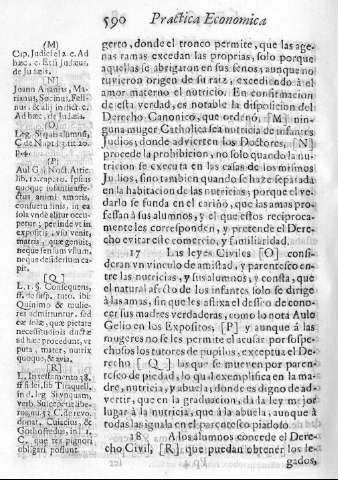 590 Practica Economica
(M)
Cap. Judæi el a. c. Ad
hæc, c. Etsi Judæus,
de Judæis.
[N]
Joann Ananius, Ma-
rianus, Socinus, Feli-
nus, & alij in dict. c.
Ad hæc, de Judæis.
(O)
Leg. Si quis alumnū,
C. de Nupt. l. 3. tit. 20.
lib. 4.
(P)
Aul Gel. Noct. Attic.
lib. 12. cap. 10. Ipsius
quoque infantis affe-
ctus animi amoris,
consuetudinis, in ea
sola vnde alitur occu-
patur; perinde vt in
expositis, vsu venit,
matris, quæ genuit,
neque sensum vllum,
neque desiderium ca-
pit.
[Q]
L. 1. §. Consequens,
ff. de susp. tuto. ibi:
Quinimò & mulie-
res admittuntur, sed
eæ solæ, quæ pietate
necessitudinis ductæ
ad hæc procedunt, vt
puta, mater, nutrix
quoque, & avia.
[R]
L. Insestamento 38.
ff.
in d. leg. Si vnquam,
verb. Susceperit libe-
ros, nu. 52 C. de revo.
donat. Cuiacius, &
Gothofredus, in l. 1.
C. quæ res pignori
obligari possunt.
gerto, donde el tronco permite, que las age-
nas ramas excedan las proprias, solo porque
aquellas se abrigaron en sus senos, aunque no
tuvieron origen de su raiz, excediendo à el
amor materno el nutricio. En confirmacion
de esta verdad, es notable la disposicion del
Derecho Canonico, que ordenò, [M] nin-
guna muger Catholica sea nutricia de infantes
Judios; donde advierten los Doctores, [N]
procede la prohibicion, no solo quando la nu-
tricion se executa en las casas de los mismos
Judios, sino tambien quando se haze separada
en la habitacion de las nutricias; porque el ve-
darlo se funda en el cariño, que las amas pro-
fessan à sus alumnos, y el que estos reciproca-
mente les corresponden, y pretende el Dere-
cho evitar este comercio, y familiaridad.
17 Las leyes Civiles [O] conside-
ran vn vinculo de amistad, y parentesco en-
tre las nutricias, y sus alumnos, y consta, que
el natural afecto de los infantes solo se dirige
à las amas, sin que les assista el desseo de cono-
cer sus madres verdaderas, como lo nota Aulo
Gelio en los Expositos, [P] y aunque à las
mugeres no se les permite el acusar por sospe-
chosos los tutores de pupilos, exceptua el De-
recho [Q] las que se mueven por paren-
tesco de piedad, lo qual exemplifica en la ma-
dre, nutricia, y abuela; donde es digno de ad-
vertir, que en la graduacion, dà la ley mejor
lugar à la nutricia, que à la abuela, aunque à
todas las iguala en el parentesco piadoso.
18 A los alumnos concede el Dere-
cho Civil, [R] que puedan obtener los le-
gados,